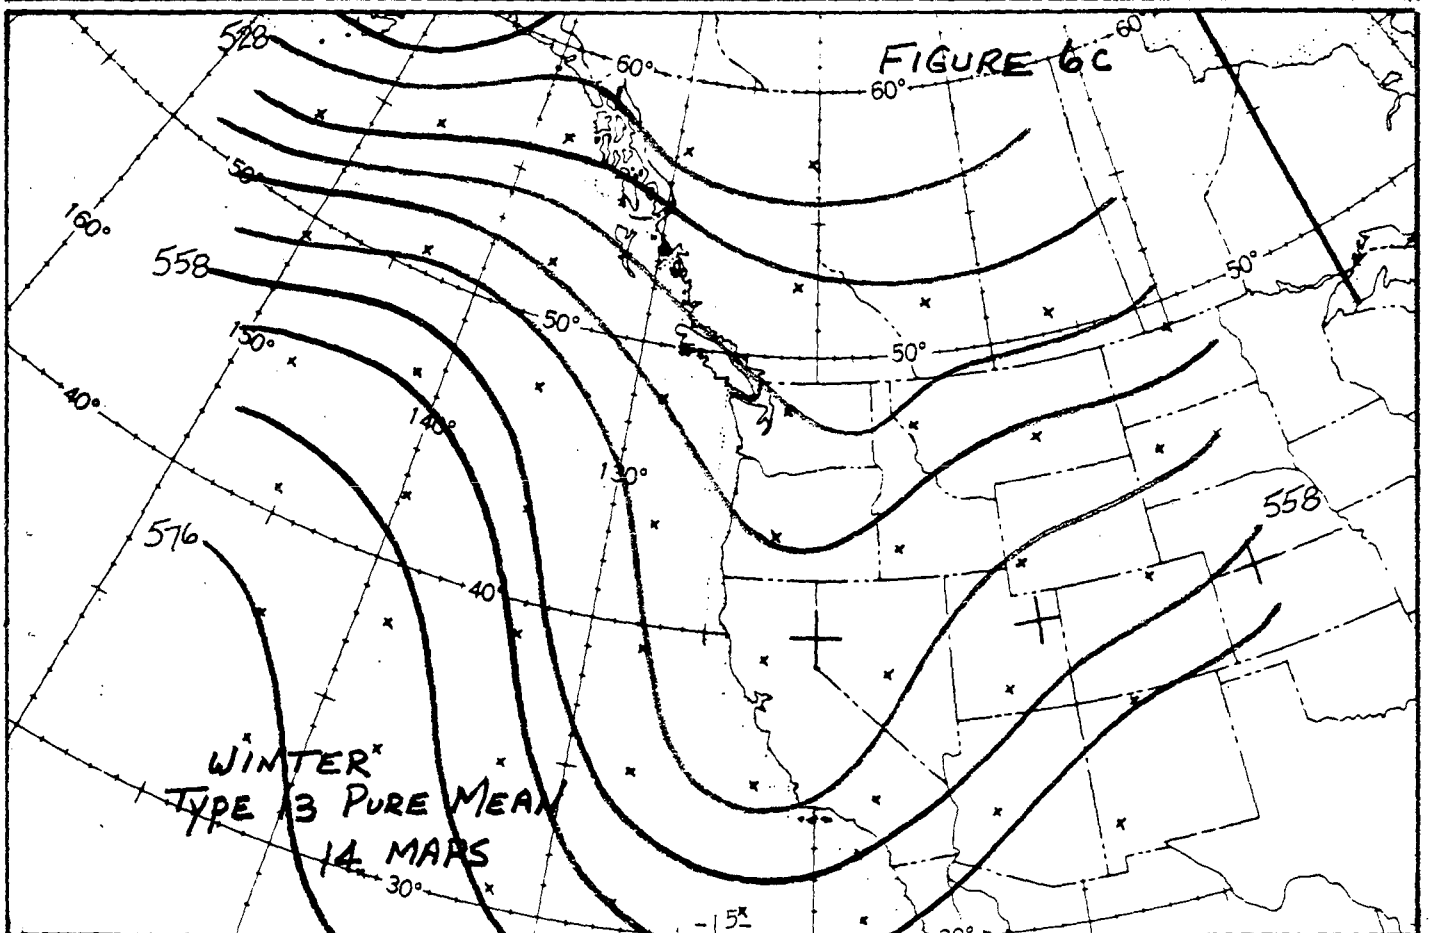 528
60°
FIGURE 6C
60°
60
50°
160°
558
50°
50°
50°
150°
40°
140°
130°
558
576
40°
WINTER
TYPE 13 PURE MEAN
14 MAPS
30°